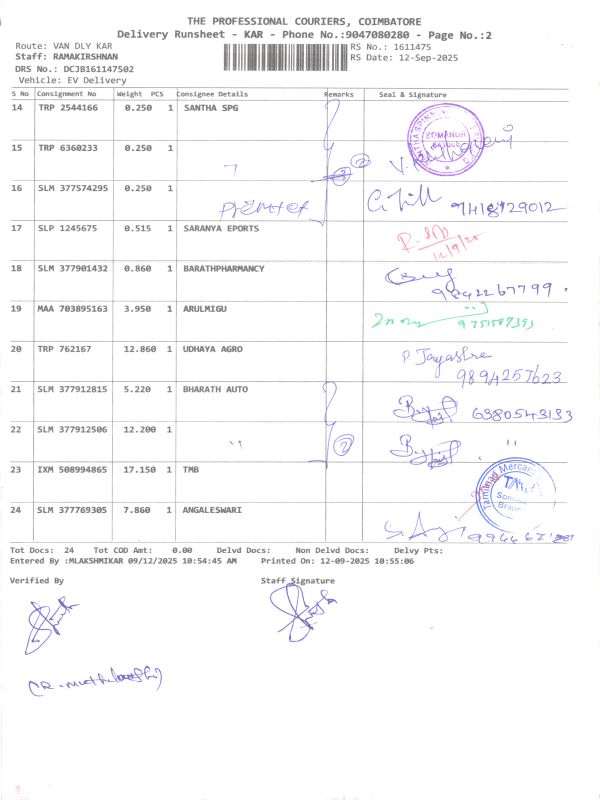 THE PROFESSIONAL COURIERS, COIMBATORE
Delivery Runsheet - KAR - Phone No.:9047080280 - Page No.:2
Route: VAN DLY KAR RS No.: 1611475
Staff: RAMAKIRSHNAN RS Date: 12-Sep-2025
DRS No.: DCJB161147502
Vehicle: EV Delivery
S No Consignment No Weight PCS Consignee Details Remarks Seal & Signature
14 TRP 2544166 0.250 1 SANTHA SPG SOMANUR
15 TRP 6360233 0.250 1 "
16 SLM 377574295 0.250 1 Premier 7418729012
17 SLP 1245675 0.515 1 SARANYA EPORTS 12/9/25
18 SLM 377901432 0.860 1 BARATHPHARMANCY 9842267799.
19 MAA 703895163 3.950 1 ARULMIGU
20 TRP 762167 12.860 1 UDHAYA AGRO P. Jayashre 9894257623
21 SLM 377912815 5.220 1 BHARATH AUTO 6380543133
22 SLM 377912506 12.200 1 " 2 "
23 IXM 508994865 17.150 1 TMB Tamilnad Mercan TMB Branch
24 SLM 377769305 7.860 1 ANGALESWARI
Tot Docs: 24 Tot COD Amt: 0.00 Delvd Docs: Non Delvd Docs: Delvy Pts:
Entered By :MLAKSHMIKAR 09/12/2025 10:54:45 AM Printed On: 12-09-2025 10:55:06
Verified By Staff Signature